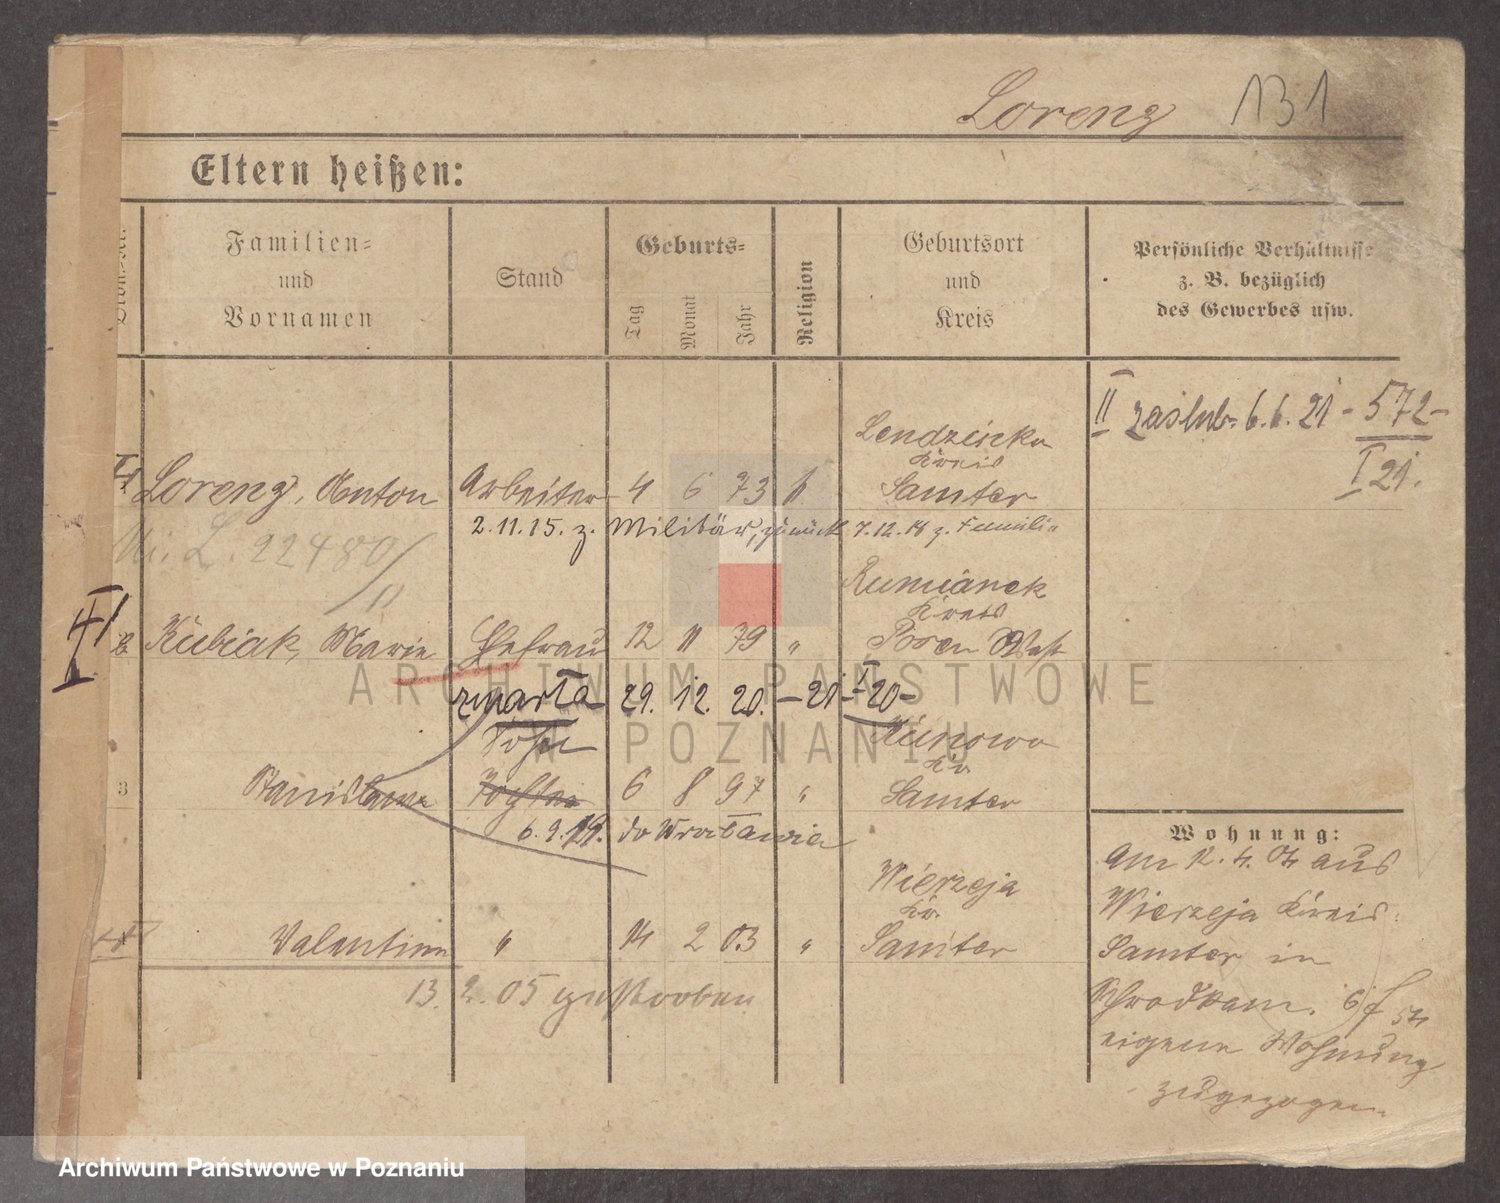 Lorenz 131
Eltern heißen:
Familien=
und
Vornamen
Stand
Geburts=
Tag
Monat
Jahr
Religion
Geburtsort
und
Kreis
Persönliche Verhältnisse
z. B. bezüglich
des Gewerbes usw.
II zaślub. 6.6.21 - 572-
I 21.
Lendzinko
Kreis
Lorenz, Anton Arbeiter 4 6 73 k Samter
2.11.15. z. Militär, zurück 7.12.18 z. Familie
L. 22480/11
Rumianek
Kreis
Kubiak, Marie Ehefrau 12 11 79 " Posen West
zmarła 29. 12. 20. - 21 I 20-
Sohn
Kunowo
Kr.
3 Stanislaus Tochter 6 8 97 " Samter
6.9.19. do Wrocławia
Wierzeja
Kr.
Valentin " 14 2 03 " Samter
13. 2. 05 gestorben
Wohnung:
Am 12. 4. 04 aus
Wierzeja Kreis
Samter in
eigene Wohnung
zugezogen.
ARCHIWUM PAŃSTWOWE
W POZNANIU
Archiwum Państwowe w Poznaniu